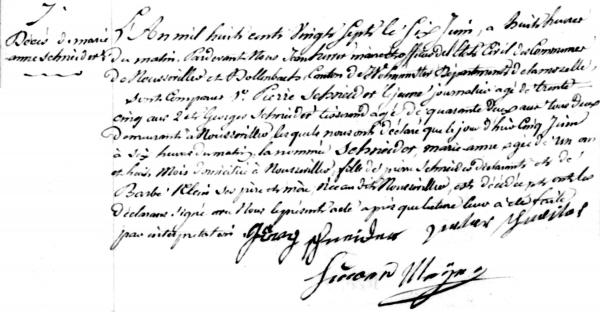 7.
Décès de marie
anne Schneider
L'An mil huit cent vingt Sept le Six Juin, a huit heures
du matin, Pardevant Nous maire et officier de l'état Civil des Communes
de Nousseviller et Dollenbach, Canton de Département de la moselle,
Sont Comparus 1° Pierre Schneider journalier agé de trente
Cinq ans 2° et Georges Schneider agé de quarante deux ans tous deux
demeurants à Nousseviller lesquels nous ont déclaré que le jour d'hier Cinq Juin
à Six heures du matin, la nommé Schneider, marie anne agée de un an
et huit Mois domicilié à Nousseviller, fille de pierre Schneider déclarant et de
Barbe Klein Ses père et mère Née au dit Nousseviller, est décédée, et ont les
déclarans Signé avec Nous le présent acte après que lecture leur a été faite
par interprétation. Georg Schneider